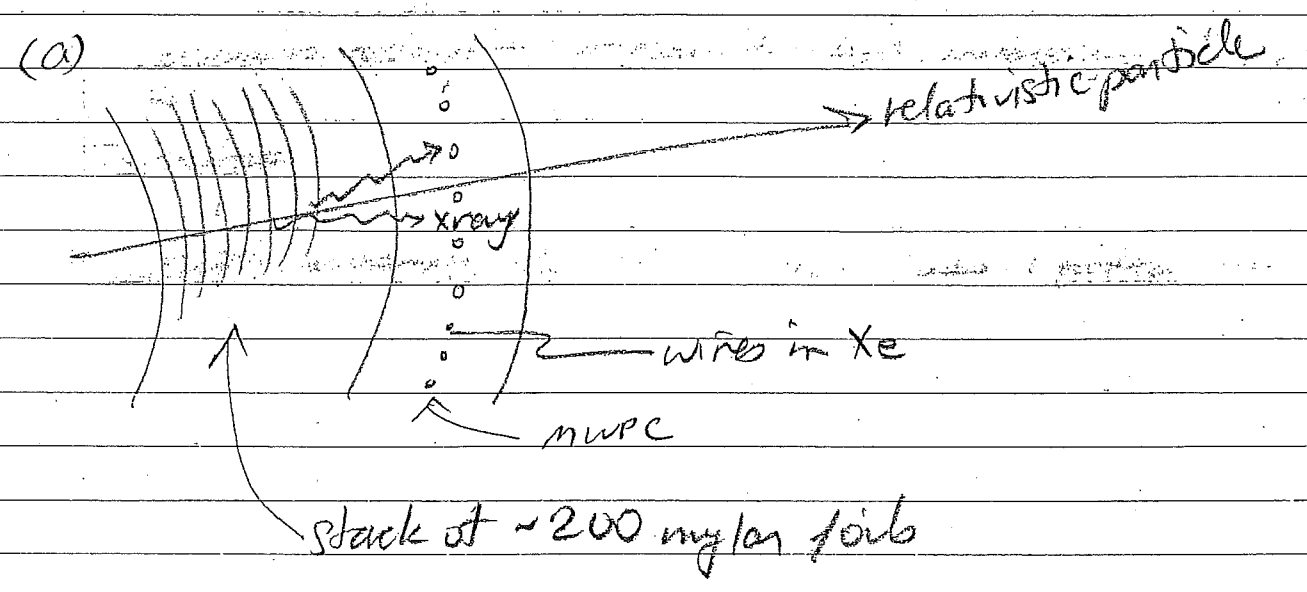 (a)
relativistic particle
xray
wires in Xe
MWPC
stack of ~200 mylar foils